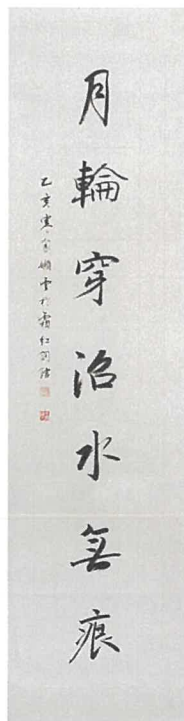 月輪穿沼水無痕
乙亥寒 雲於霜紅